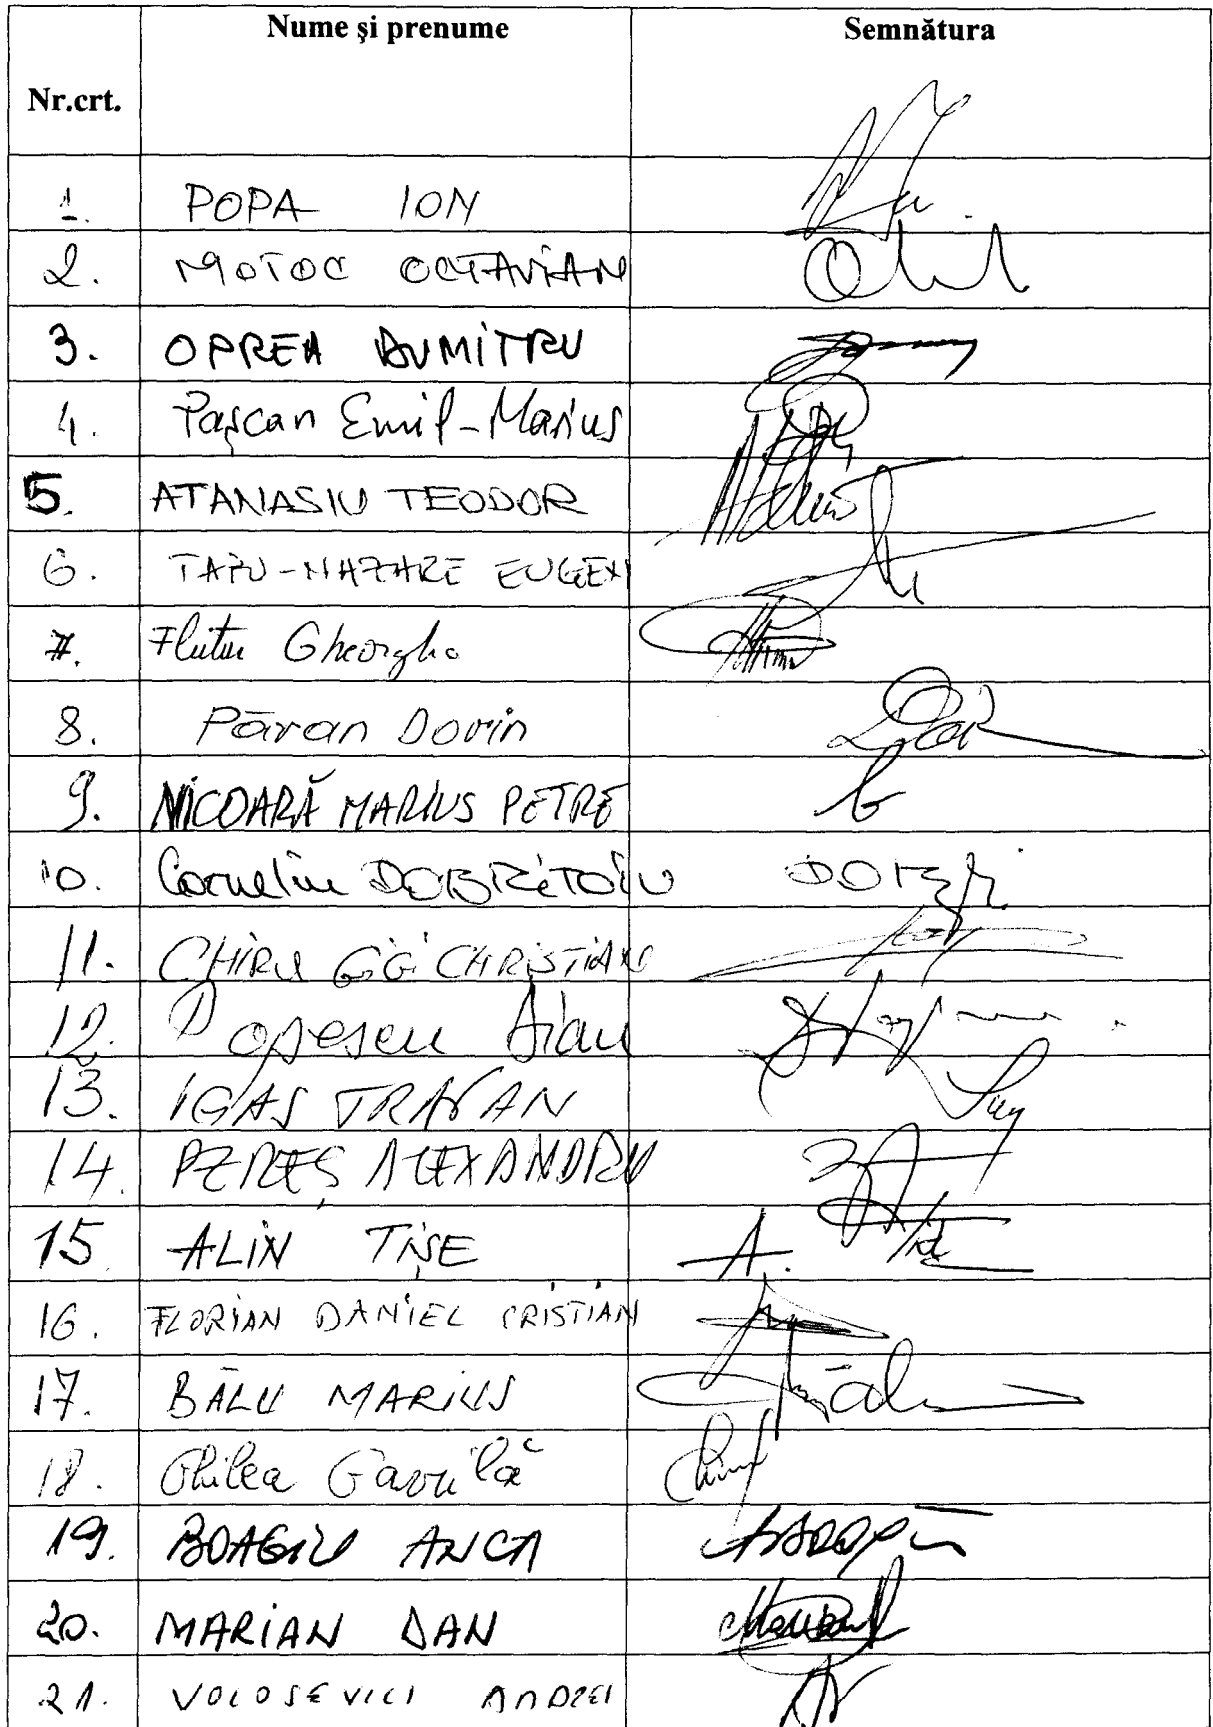 Nr.crt. Nume şi prenume Semnătura
1. POPA ION
2. MOTOC OCTAVIAN
3. OPREA DUMITRU
4. Paşcan Emil-Marius
5. ATANASIU TEODOR
6. TAPU-NAZARE EUGEN
7. Flutur Gheorghe
8. Păran Dorin
9. NICOARĂ MARIUS PETRE
10. Corneliu DOBRIŢOIU
11. CHIRU GIGI CHRISTIAN
12. Popescu Dian
13. IGAS TRAIAN
14. PEREŞ ALEXANDRU
15 ALIN TIŞE
16. FLORIAN DANIEL CRISTIAN
17. BÂLU MARIUS
18. Ghilea Gavrilă
19. BOAGIU ANCA
20. MARIAN DAN
21. VOLOSEVICI ANDREI